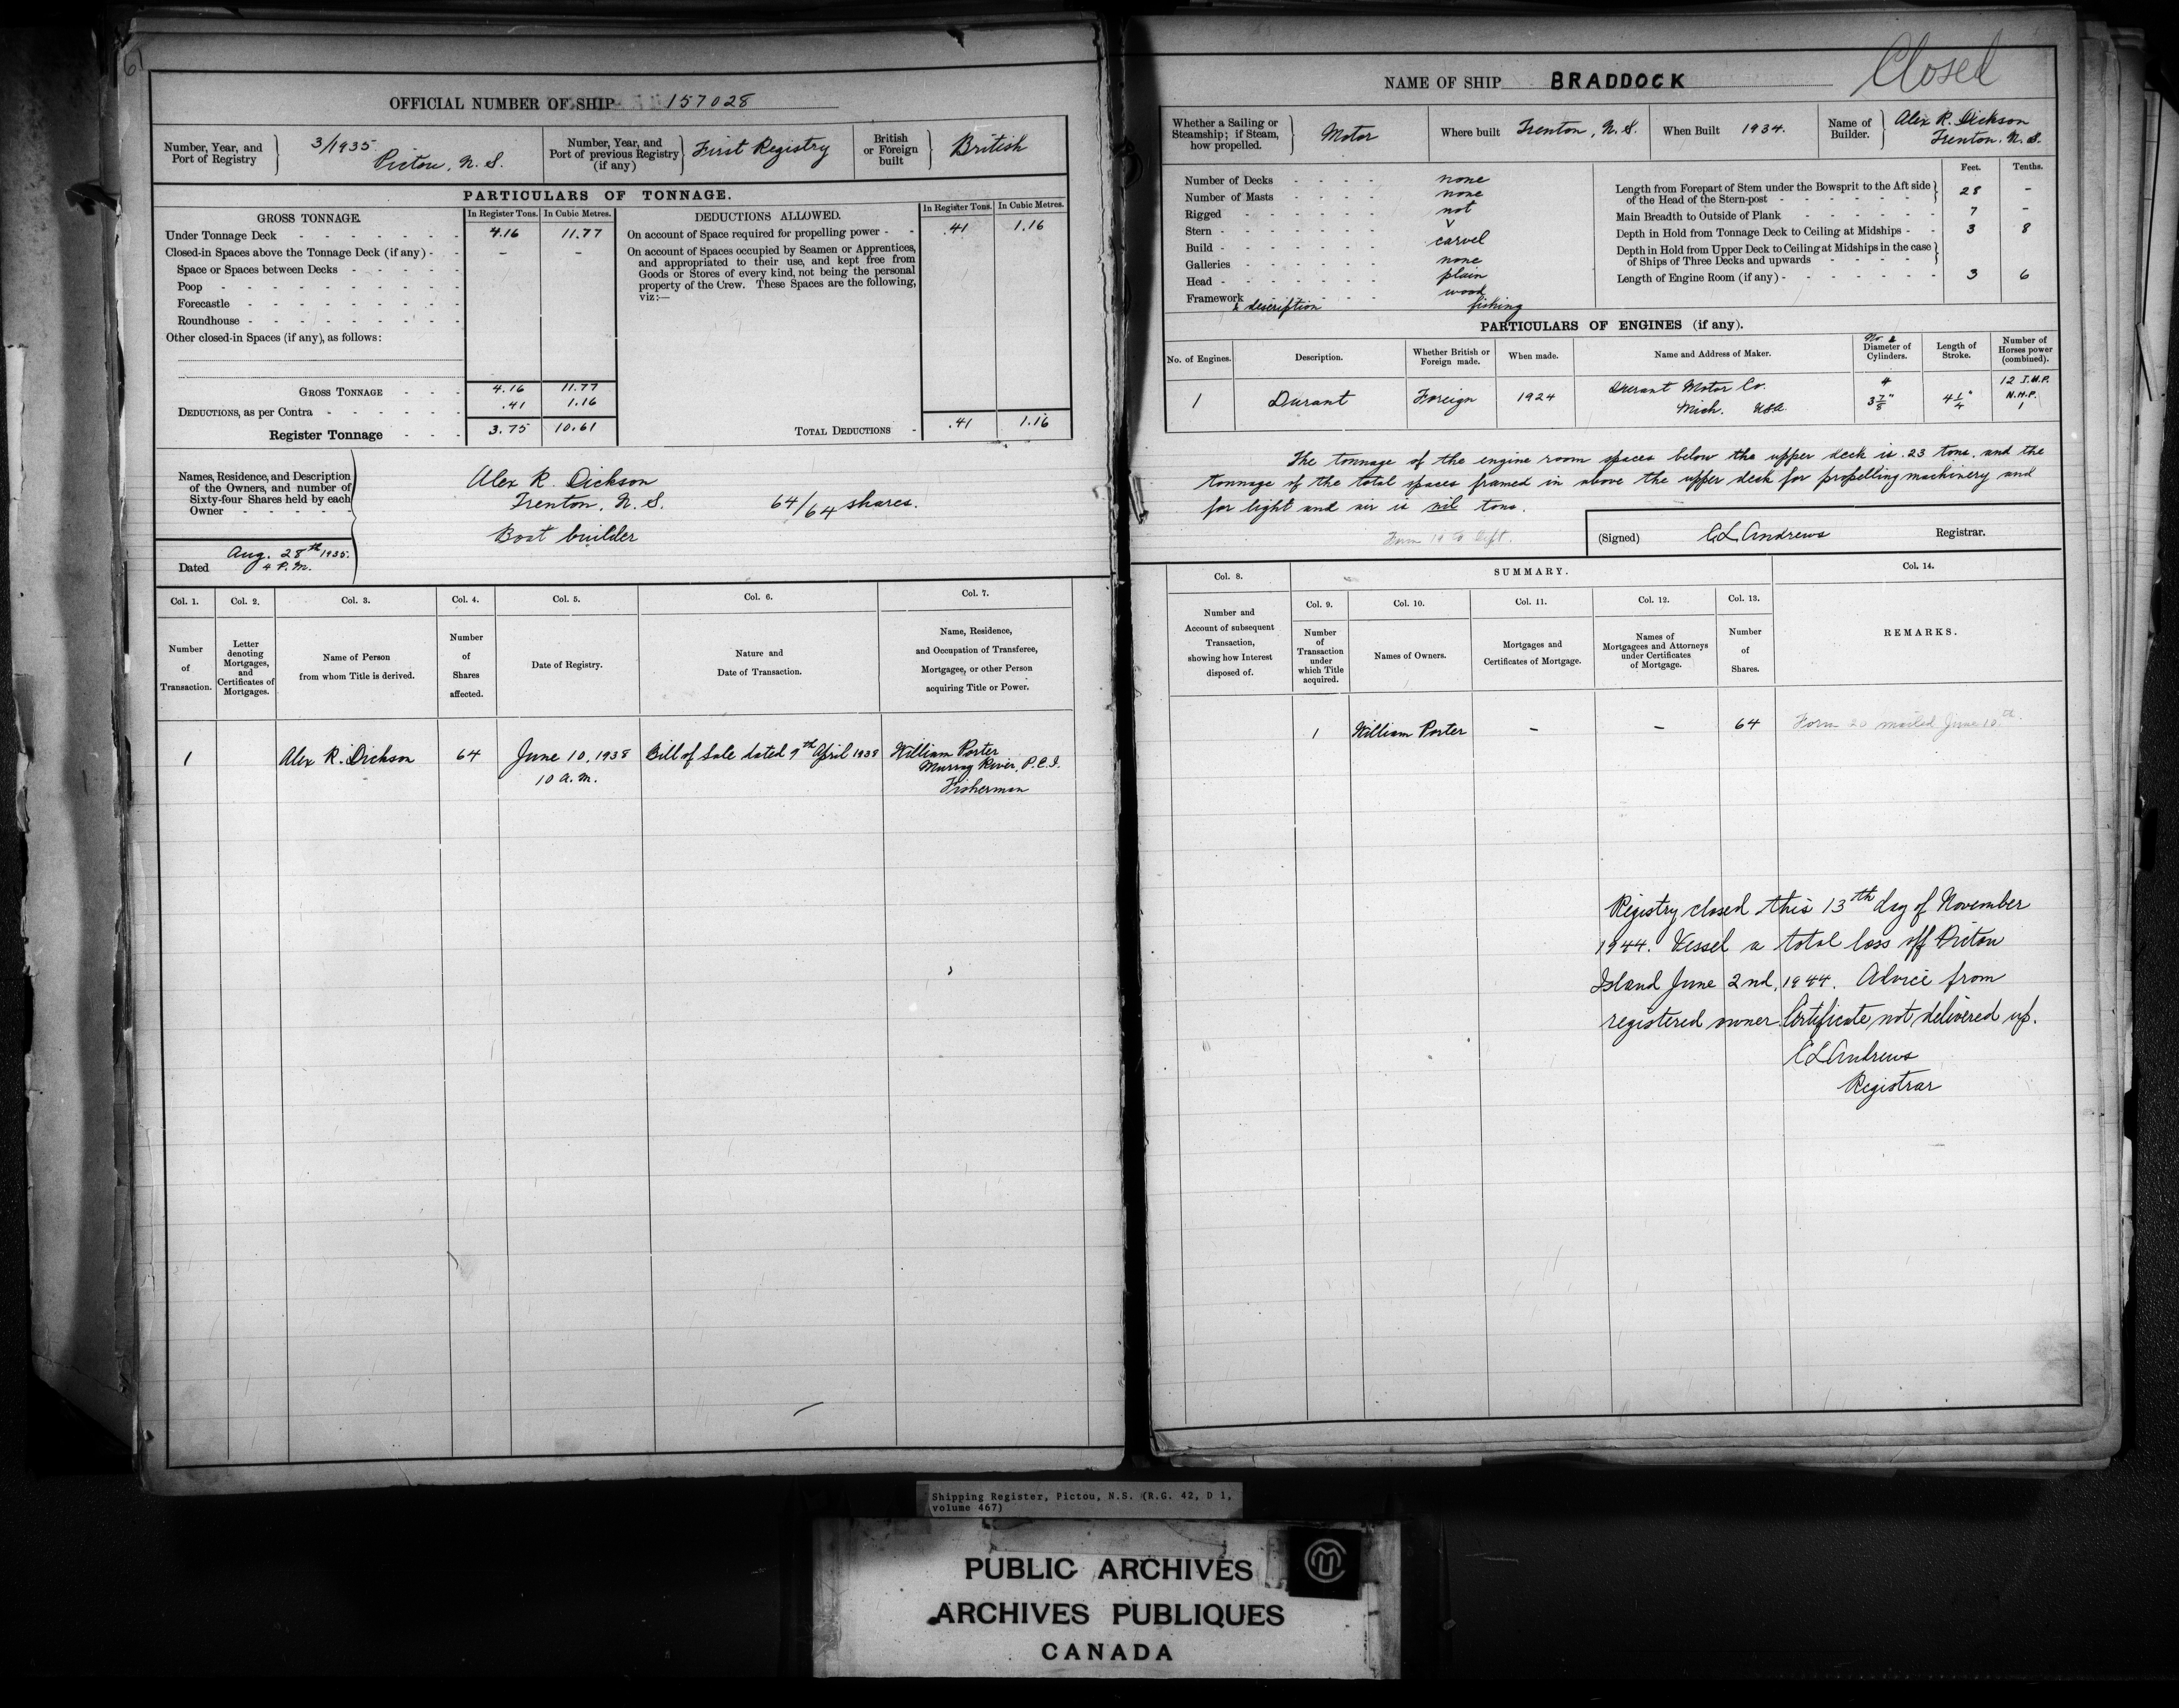 61
OFFICIAL NUMBER OF SHIP 157028
Number, Year, and Port of Registry } 3/1935. Pictou, N.S.
Number, Year, and Port of previous Registry (if any) } First Registry
British or Foreign built } British
PARTICULARS OF TONNAGE.
GROSS TONNAGE. In Register Tons. In Cubic Metres.
Under Tonnage Deck - 4.16 11.77
Closed-in Spaces above the Tonnage Deck (if any) - – –
Space or Spaces between Decks -
Poop -
Forecastle -
Roundhouse -
Other closed-in Spaces (if any), as follows:
GROSS TONNAGE - 4.16 11.77
DEDUCTIONS, as per Contra - .41 1.16
Register Tonnage - 3.75 10.61
DEDUCTIONS ALLOWED. In Register Tons. In Cubic Metres.
On account of Space required for propelling power - .41 1.16
On account of Spaces occupied by Seamen or Apprentices,
and appropriated to their use, and kept free from
Goods or Stores of every kind, not being the personal
property of the Crew. These Spaces are the following,
viz:—
TOTAL DEDUCTIONS - .41 1.16
Names, Residence, and Description
of the Owners, and number of
Sixty-four Shares held by each
Owner
Alex R. Dickson
Trenton, N.S. 64/64 shares.
Boat builder
Dated Aug. 28th 1935. 4 P.M.
Col. 1. Col. 2. Col. 3. Col. 4. Col. 5. Col. 6. Col. 7.
Number of Transaction.
Letter denoting Mortgages, and Certificates of Mortgages.
Name of Person from whom Title is derived.
Number of Shares affected.
Date of Registry.
Nature and Date of Transaction.
Name, Residence, and Occupation of Transferee, Mortgagee, or other Person acquiring Title or Power.
1 Alex R. Dickson 64 June 10, 1938 Bill of Sale dated 9th April 1938 William Porter
10 a.m. Murray River, P.E.I.
Fisherman
NAME OF SHIP BRADDOCK
Closed
Whether a Sailing or Steamship; if Steam, how propelled. } Motor
Where built Trenton, N.S.
When Built 1934.
Name of Builder. } Alex R. Dickson Trenton. N.S.
Number of Decks - none
Number of Masts - none
Rigged - not
Stern - V
Build - carvel
Galleries - none
Head - plain
Framework - wood
& description fishing
Feet. Tenths.
Length from Forepart of Stem under the Bowsprit to the Aft side
of the Head of the Stern-post - 28 –
Main Breadth to Outside of Plank - 7 –
Depth in Hold from Tonnage Deck to Ceiling at Midships - 3 8
Depth in Hold from Upper Deck to Ceiling at Midships in the case
of Ships of Three Decks and upwards -
Length of Engine Room (if any) - 3 6
PARTICULARS OF ENGINES (if any).
No. of Engines. Description. Whether British or Foreign made. When made. Name and Address of Maker. No. & Diameter of Cylinders. Length of Stroke. Number of Horses power (combined).
1 Durant Foreign 1924 Durant Motor Co. Mich. USA. 4 3 7/8" 4 1/4" 12 I.H.P. N.H.P. 1
The tonnage of the engine room spaces below the upper deck is .23 tons, and the
tonnage of the total spaces framed in above the upper deck for propelling machinery and
for light and air is nil tons.
Form 19 to Dept.
(Signed) C L Andrews Registrar.
Col. 8. SUMMARY. Col. 14.
Col. 9. Col. 10. Col. 11. Col. 12. Col. 13.
Number and Account of subsequent Transaction, showing how Interest disposed of.
Number of Transaction under which Title acquired.
Names of Owners.
Mortgages and Certificates of Mortgage.
Names of Mortgagees and Attorneys under Certificates of Mortgage.
Number of Shares.
REMARKS.
1 William Porter – – 64 Form 20 mailed June 10th.
Registry closed this 13th day of November
1944. Vessel a total loss off Pictou
Island June 2nd, 1944. Advice from
registered owner. Certificate not delivered up.
C L Andrews
Registrar
Shipping Register, Pictou, N.S. (R.G. 42, D 1,
volume 467)
PUBLIC ARCHIVES
ARCHIVES PUBLIQUES
CANADA